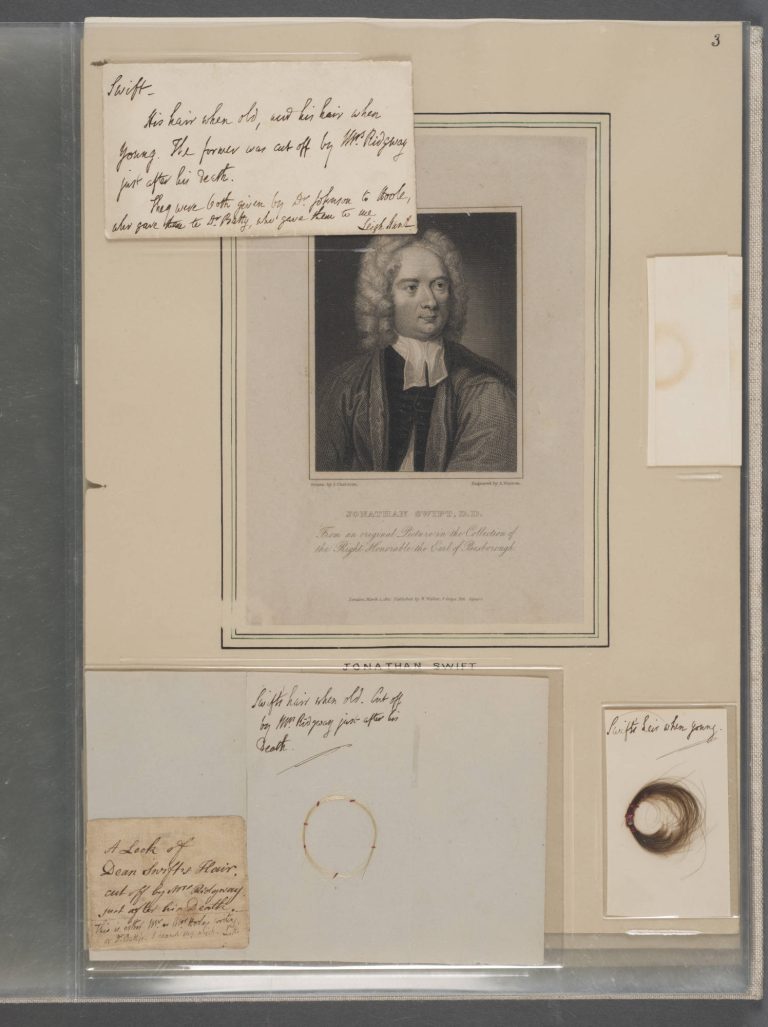 3
Swift—
His hair when old, and his hair when
young. The former was cut off by Mrs Ridgway
just after his death.
They were both given by Dr. Johnson to Hoole,
who gave them to Dr Batty, who gave them to me
Leigh Hunt
JONATHAN SWIFT, D.D.
From an original Picture in the Collection of
the Right Honorable the Earl of Besborough
JONATHAN SWIFT
Swift's hair when old. Cut off
by Mrs Ridgway just after his
Death.
Swift's hair when young.
A Lock of
Dean Swift's Hair,
cut off by Mrs Ridgway
just after his Death.
This is either Mr. or Mrs